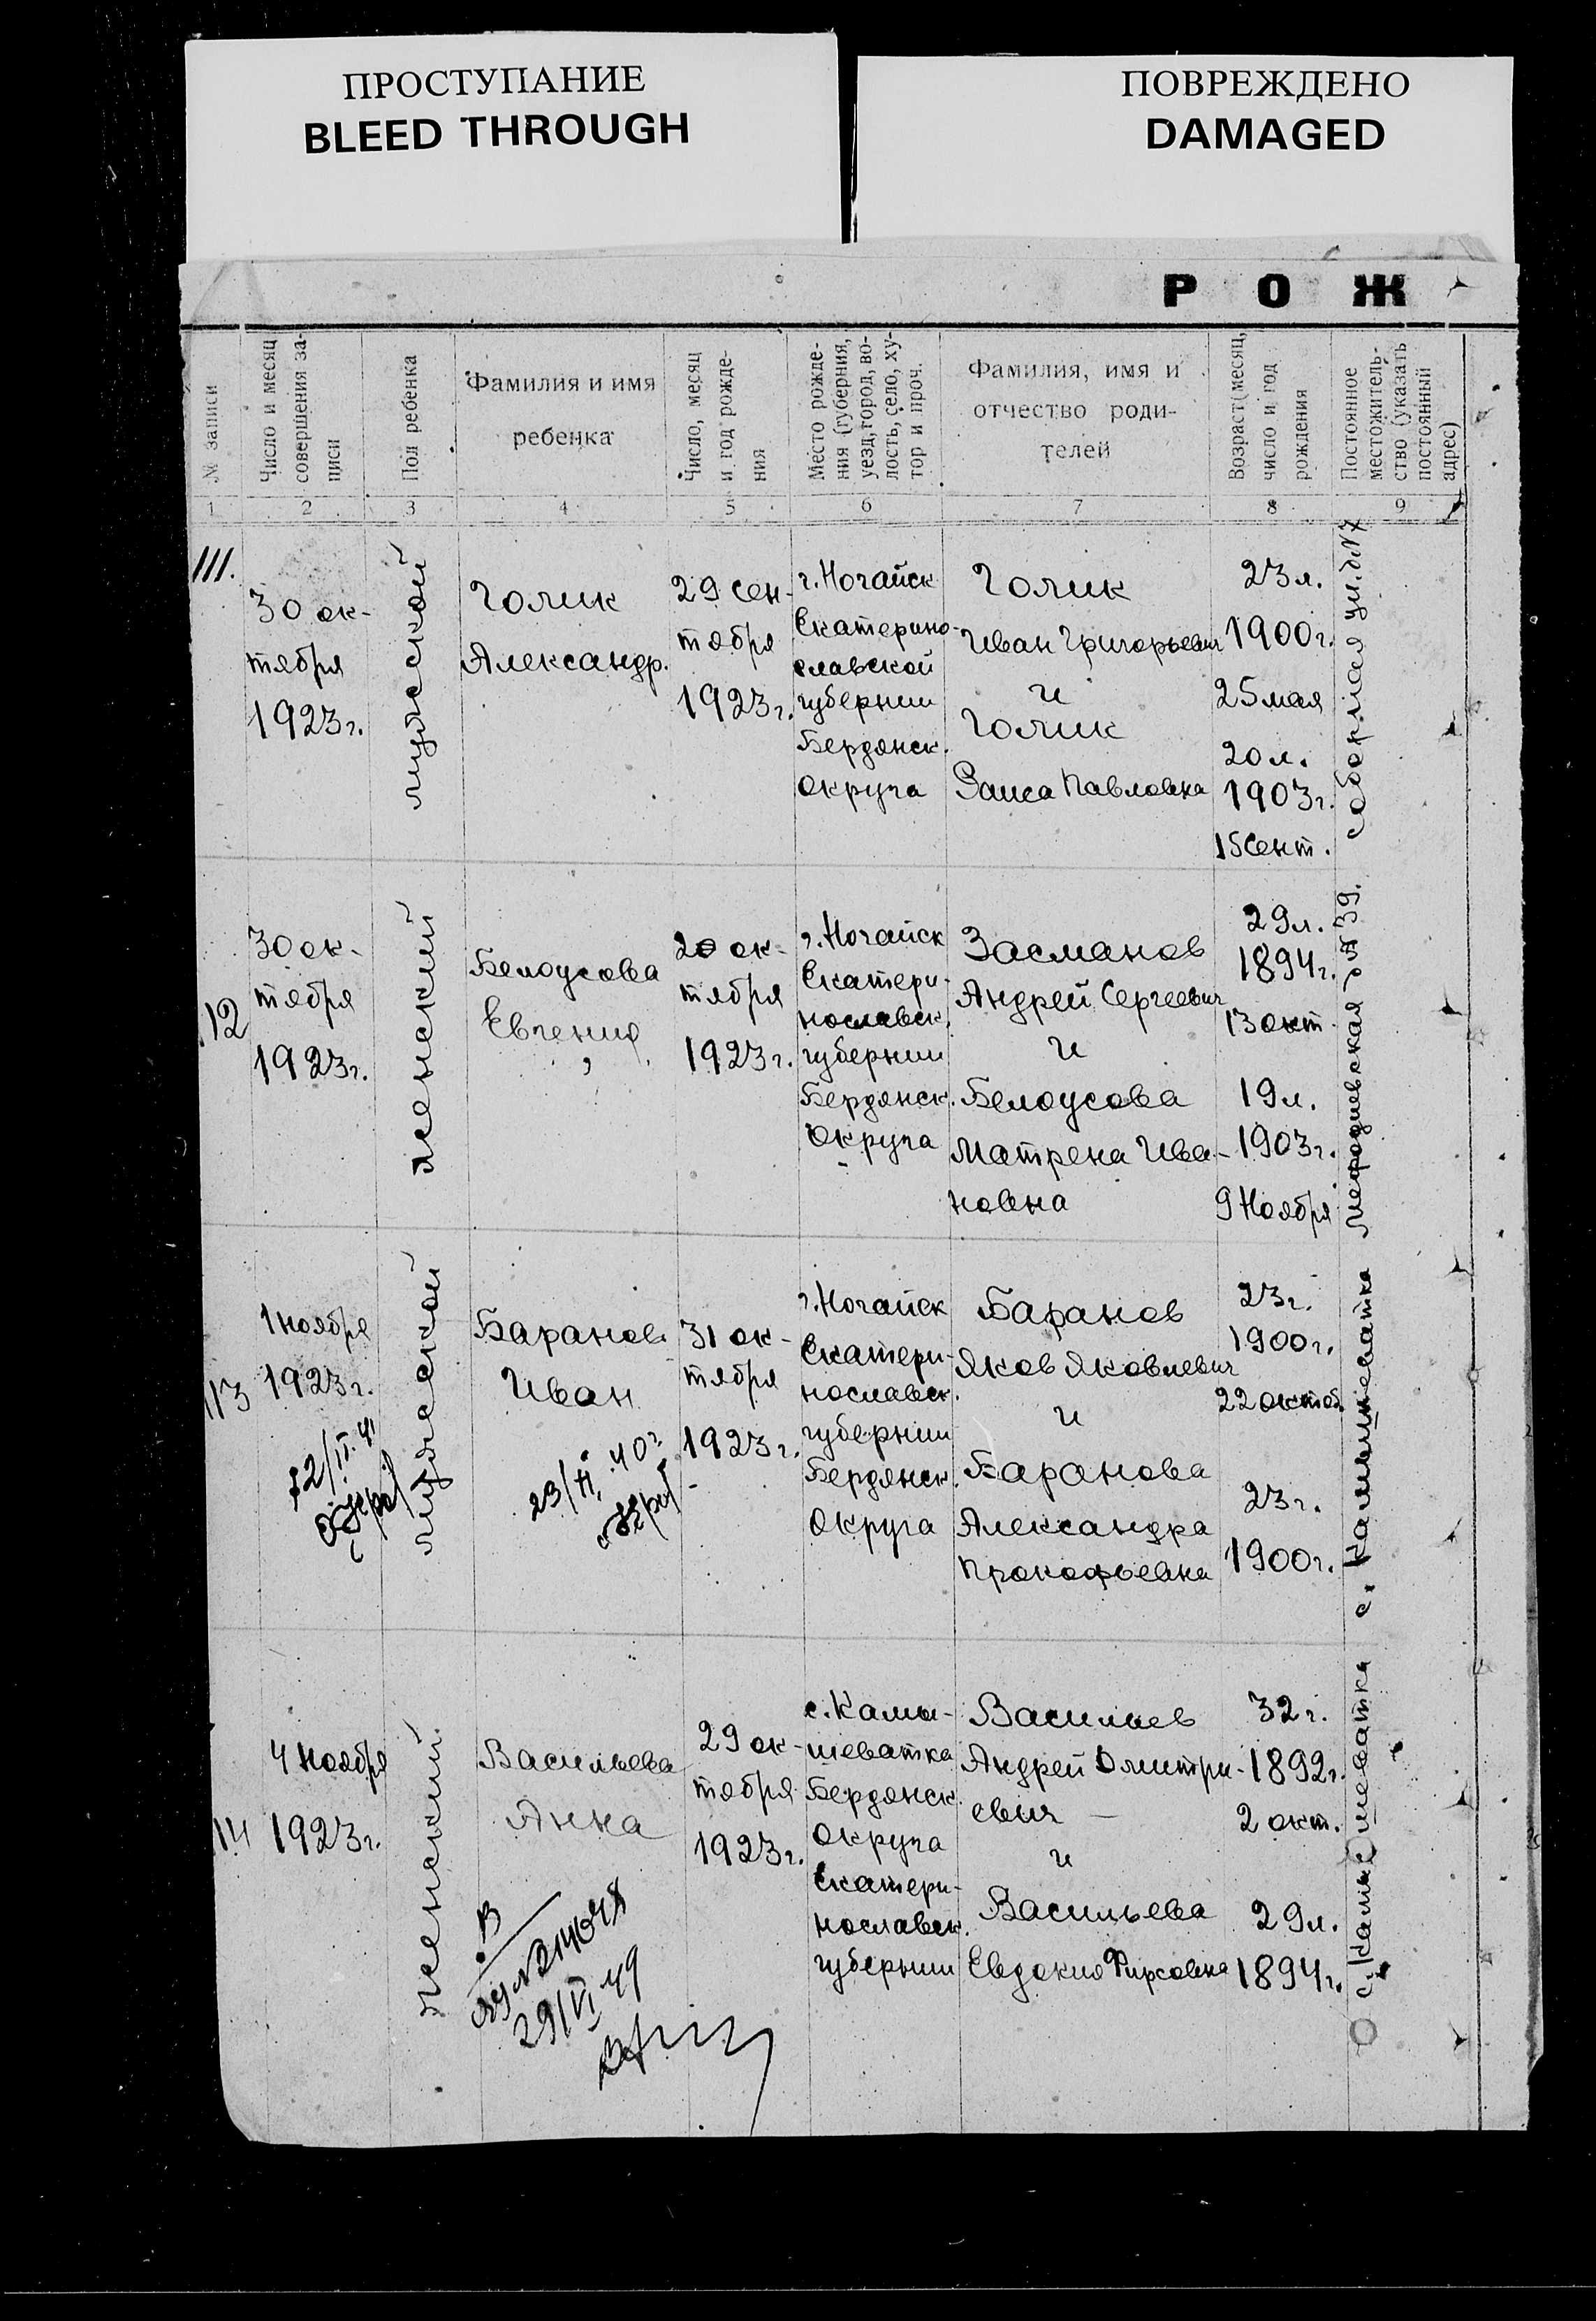 ПРОСТУПАНИЕ
BLEED THROUGH
ПОВРЕЖДЕНО
DAMAGED
Р О Ж
№ записи
Число и месяц
совершения за-
писи
Пол ребенка
Фамилия и имя
ребенка
Число, месяц
и год рожде-
ния
Место рожде-
ния (губерния,
уезд, город, во-
лость, село, ху-
тор и проч.
Фамилия, имя и
отчество роди-
телей
Возраст (месяц,
число и год
рождения
Постоянное
местожитель-
ство (указать
постоянный
адрес)
1 2 3 4 5 6 7 8 9
111.
30 ок-
тября
1923г.
мужской
Голик
Александр.
29 сен-
тября
1923г.
г. Ногайск
Екатерино-
славской
губернии
Бердянск.
округа
Голик
Иван Григорьевич
и
Голик
Раиса Павловна
23 л.
1900г.
25 мая
20 л.
1903г.
15 сент.
соборная ул. д. №7
12
30 ок-
тября
1923г.
женский
Белоусова
Евгения
20 ок-
тября
1923г.
г. Ногайск
Екатери-
нославск.
губернии
Бердянск.
округа
Засманов
Андрей Сергеевич
и
Белоусова
Матрена Ива-
новна
29 л.
1894г.
13 окт.
19 л.
1903г.
9 Ноября
мефодиевская №39.
113
1 ноября
1923г.
мужской
Баранов
Иван
31 ок-
тября
1923г.
г. Ногайск
Екатери-
нославск.
губернии
Бердянск.
округа
Баранов
Яков Яковлевич
и
Баранова
Александра
Прокофьевна
23г.
1900г.
22 октяб.
23г.
1900г.
с. Камышеватка
114
4 ноября
1923г.
женский
Васильева
Анна
29 ок-
тября
1923г.
с. Камы-
шеватка
Бердянск.
округа
Екатери-
нославск.
губернии
Васильев
Андрей Дмитри-
евич
и
Васильева
Евдокия Фирсовна
32г.
1892г.
2 окт.
29 л.
1894г.
с. Камышеватка
29/VI 49